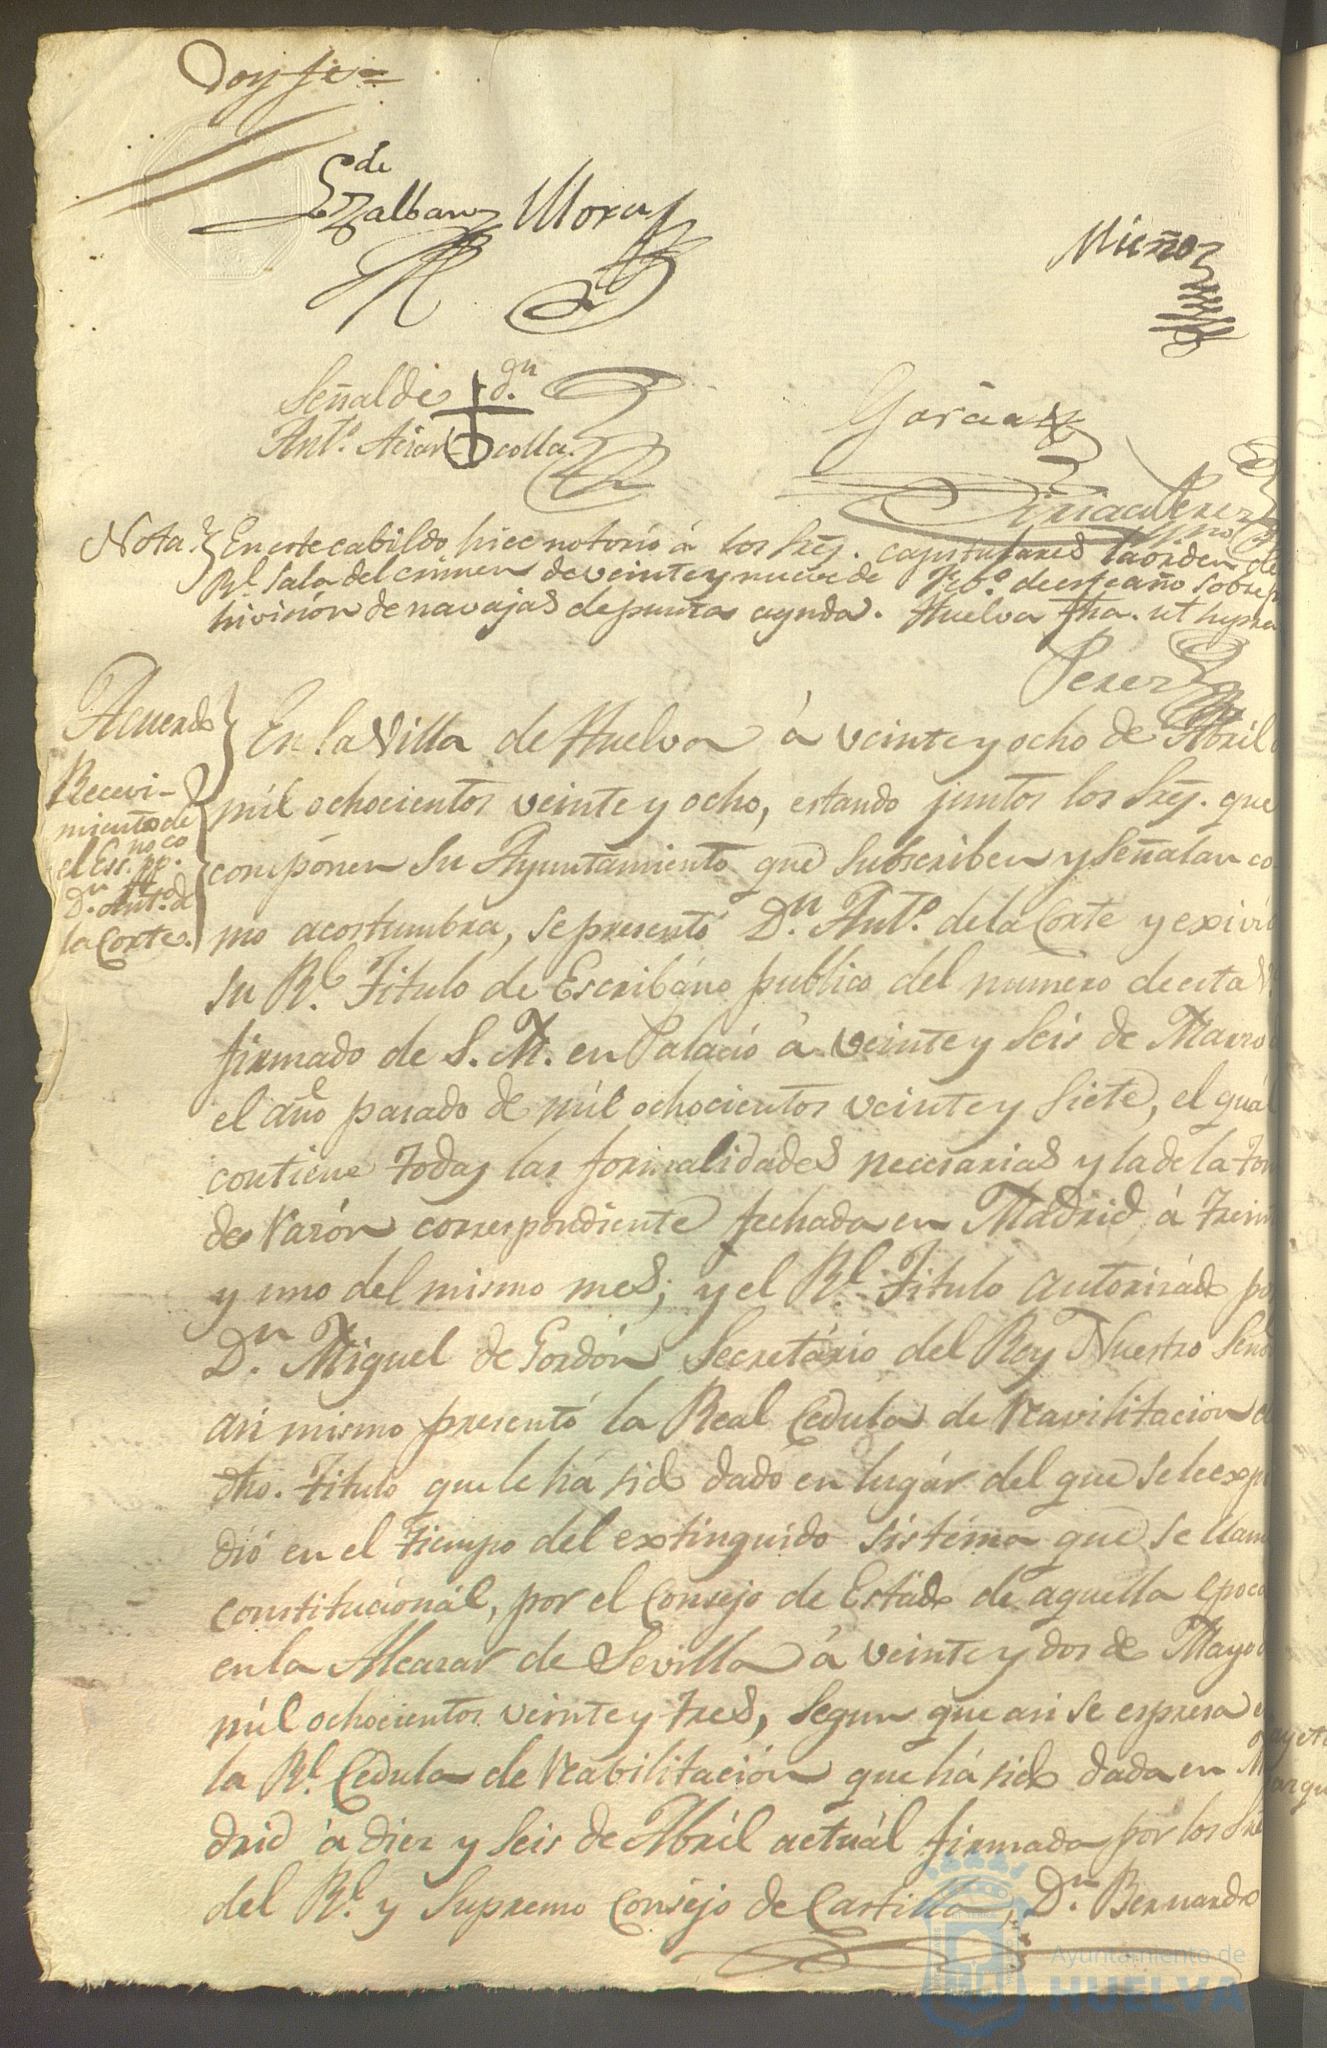 Doy fe=
de
Mora
Muñoz
Señal de + Dn.
Anto.
Garcia
Perez
Nota. En este cabildo hice notorio á los Sres. capitulares la orden de
Rl. Sala del crimen de veinte y nueve de Fro. de este año sobre p
hivición de navajas de punta aguda. Huelva fha. ut supra
Perez
Acuerdo
Recevi-
miento de
el Essno. ppco.
Dn. Anto. de
la Corte.
En la Villa de Huelva á veinte y ocho de Abril
mil ochocientos veinte y ocho, estando juntos los Sres. que
componen su Ayuntamiento que subscriben y señalan co
mo acostumbra, se presentó Dn. Anto. de la Corte y exivió
su Rl. Titulo de Escribano publico del número de esta V
firmado de S. M. en Palacio á veinte y seis de Marzo
el año pasado de mil ochocientos veinte y siete, el qual
contiene todas las formalidades necesarias y la de la tom
de razón correspondiente fechada en Madrid á trein
y uno del mismo mes; y el Rl. Titulo autorizado por
Dn. Miguel de Gordón Secretário del Rey Nuestro Señ
asi mismo presentó la Real Cedula de reavilitación d
dho. Titulo que le há sido dado en lugár del que se le expi
dió en el tiempo del extinguido sistéma que se llam
constitucionál, por el Consejo de Estado de aquella epoca
en la Alcazar de Sevilla á veinte y dos de Mayo
mil ochocientos veinte y tres, segun que asi se espresa e
la Rl. Cedula de reabilitación que há sido dada en Ma
drid á diez y seis de Abril actuál firmada por los Sres
del Rl. y Supremo Consejo de Castilla, Dn. Bernardo
Ayuntamiento de
HUELVA